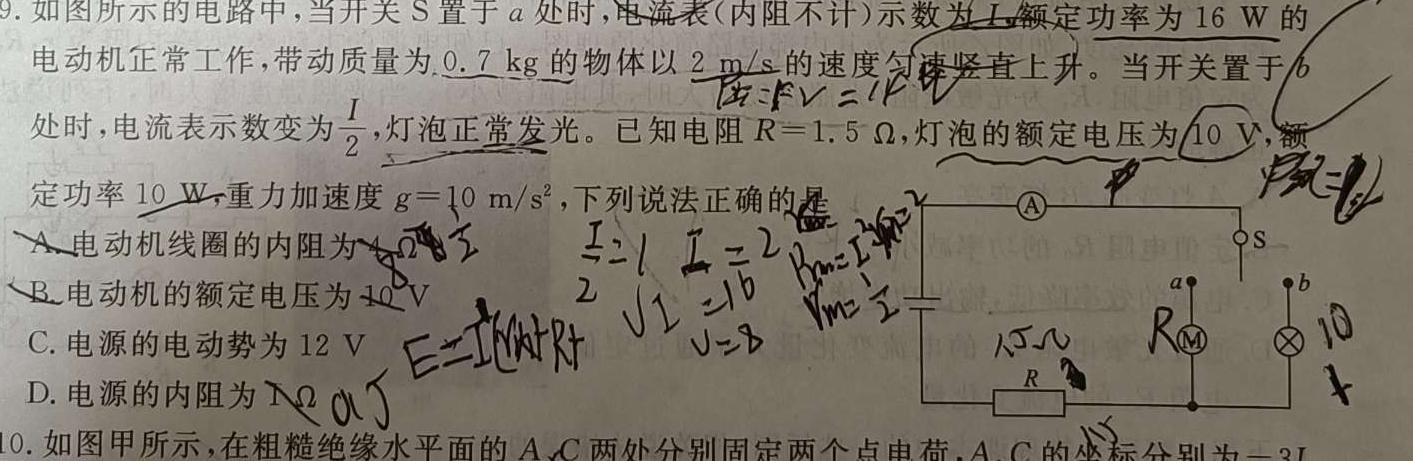 9. 如图所示的电路中,当开关 S 置于 a 处时,电流表(内阻不计)示数为 I,额定功率为 16 W 的
电动机正常工作,带动质量为 0.7 kg 的物体以 2 m/s 的速度匀速竖直上升。当开关置于 b
处时,电流表示数变为 I/2,灯泡正常发光。已知电阻 R=1.5 Ω,灯泡的额定电压为 10 V,额
定功率 10 W,重力加速度 g=10 m/s²,下列说法正确的是
A. 电动机线圈的内阻为 Ω
B. 电动机的额定电压为 10 V
C. 电源的电动势为 12 V
D. 电源的内阻为 1 Ω
I/2 =1 I =2
UI =16
U=8
0.5
A
S
a
b
R
M
10
1.5Ω
R
10. 如图甲所示,在粗糙绝缘水平面的 A、C 两处分别固定两个点电荷,A、C 的坐标分别为 −3L